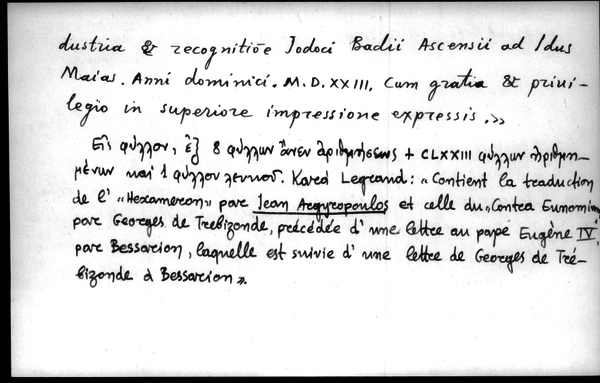 dustria & recognitiōe Jodoci Badii Ascensii ad Idus
Maias. Anni dominici. M.D.XXIII. Cum gratia & privi-
legio in superiore impressione expressis.»
Εἰς φύλλον, ἐξ 8 φύλλων ἄνευ ἀριθμήσεως + CLXXIII φύλλων ἀριθμη-
μένων καὶ 1 φύλλου λευκοῦ. Κατὰ Legrand: «Contient la traduction
de l' «Hexameron» par Jean Argyropoulos et celle du «Contra Eunomium
par Georges de Trébizonde, précédée d'une lettre au pape Eugène IV,
par Bessarion, laquelle est suivie d'une lettre de Georges de Tré-
bizonde à Bessarion».